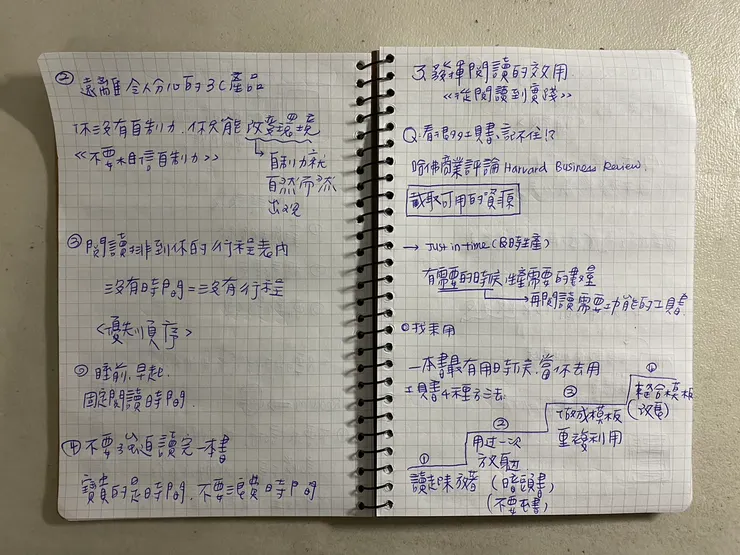 ② 遠離令人分心的3C產品
你沒有自制力,你只能改變環境
《不要相信自制力》
→自制力就
自然而然
出現
③ 閱讀排到你的行程表內
沒有時間=沒有行程
<優先順序>
◎ 睡前,早起,
固定閱讀時間
④ 不要強迫讀完一本書
寶貴的是時間,不要浪費時間
3.發揮閱讀的效用
《從閱讀到實踐》
Q.看很多工具書,記不住!?
哈佛商業評論 Harvard Business Review.
截取可用的資源
→ Just in time (及時生產)
有需要的時候,生產需要的數量
→再閱讀需要功能的工具書.
◎找來用
一本書最有用時候,當你去用
工具書4種方法:
① 讀起味放著 (暗頭書)
(不要書)
② 用过一次
放身边
③ 做成模板
重複利用
④ 整合模板
(改良)